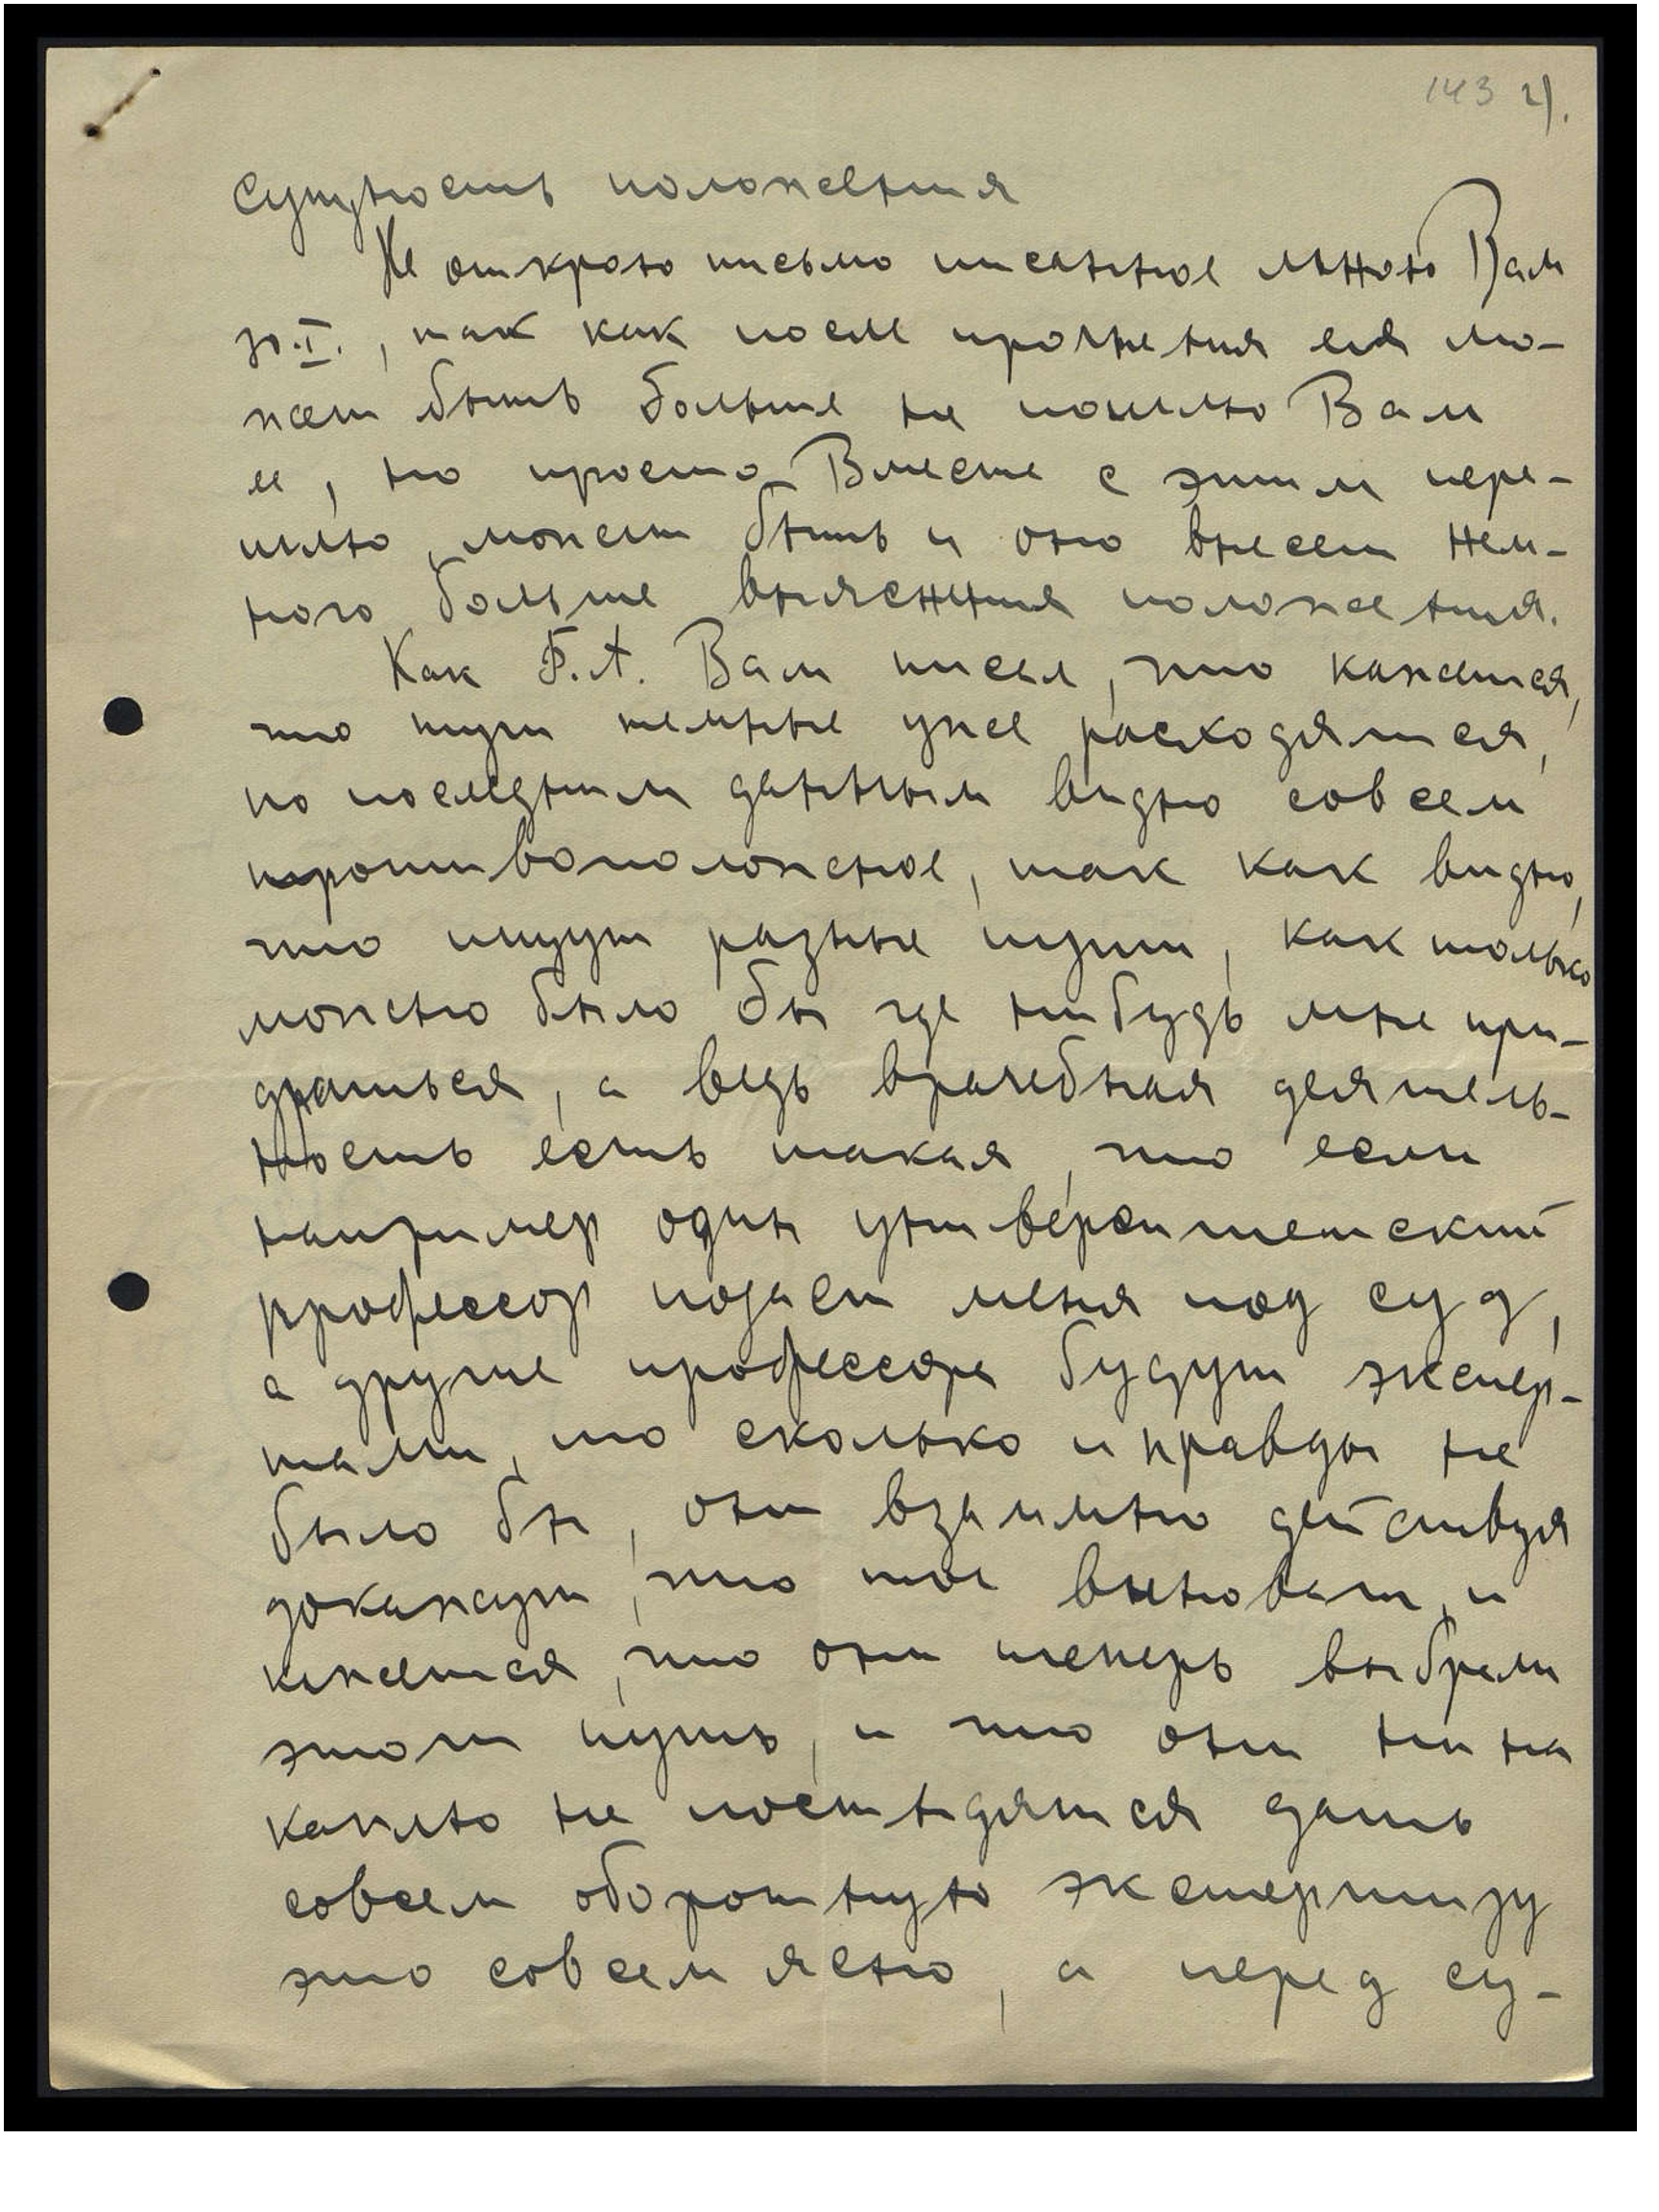 143 2).
сущность положения
Не открою письмо писанное мною Вам
30.I., так как после прочтения ея мо-
жет быть больше не пошлю Вам
ее, но просто Вместе с этим пере-
шлю, может быть и оно внесет нем-
ного больше выяснения положения.
Как Г.А. Вам писал, что кажется,
что тучи темные уже расходятся,
но последним данным видно совсем
противоположное, так как видно,
что ищут разные пути, как только
можно было бы где нибудь мне при-
драться, а ведь врачебная деятель-
ность есть такая, что если
например один университетский
профессор подает меня под суд,
а другие профессора будут экспер-
тами, то сколько и правды не
было бы, они взаимно действуя
докажут, что тот виноват, и
кажется, что они теперь выбрали
этот путь, и что они ни на
каплю не постыдятся дать
совсем оборотную экспертизу
это совсем ясно, а перед су-